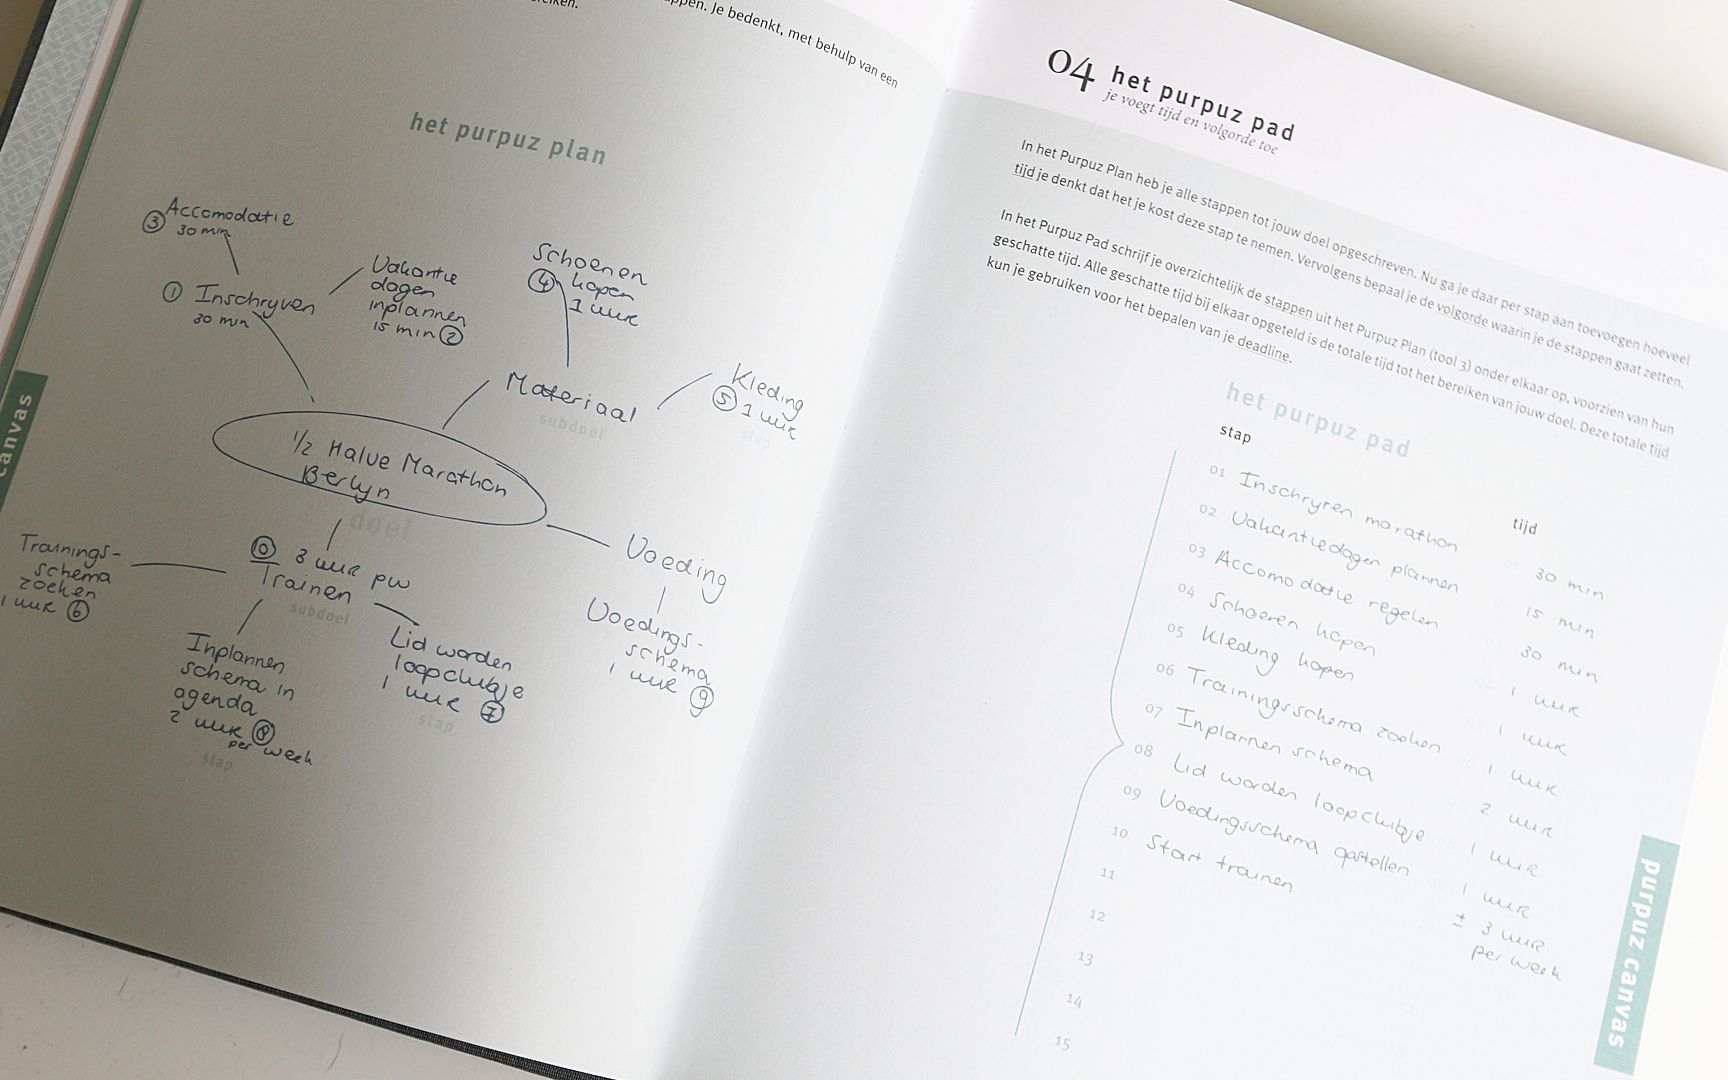 ppen. Je bedenkt, met behulp van een
reiken.
het purpuz plan
Accomodatie
③ 30 min
① Inschryven
30 min
Vakantie
dagen
inplannen
15 min ②
Schoenen
④ kopen
1 uur
Materiaal
subdoel
Kleding
⑤ 1 uur
stap
1/2 Halve Marathon
Berlyn
doel
Trainings-
schema
zoeken
1 uur ⑥
⑩ 3 uur pw
Trainen
subdoel
Inplannen
schema in
agenda
2 uur ⑧
per week
stap
Lid worden
loopclubje
1 uur ⑦
stap
Voeding
Voedings-
schema
1 uur ⑨
canvas
04 het purpuz pad
je voegt tijd en volgorde toe
In het Purpuz Plan heb je alle stappen tot jouw doel opgeschreven. Nu ga je daar per stap aan toevoegen hoeveel
tijd je denkt dat het je kost deze stap te nemen. Vervolgens bepaal je de volgorde waarin je de stappen gaat zetten.
In het Purpuz Pad schrijf je overzichtelijk de stappen uit het Purpuz Plan (tool 3) onder elkaar op, voorzien van hun
geschatte tijd. Alle geschatte tijd bij elkaar opgeteld is de totale tijd tot het bereiken van jouw doel. Deze totale tijd
kun je gebruiken voor het bepalen van je deadline.
het purpuz pad
stap tijd
01 Inschryven marathon 30 min
02 Vakantiedagen plannen 15 min
03 Accomodatie regelen 30 min
04 Schoenen kopen 1 uur
05 Kleding kopen 1 uur
06 Trainingsschema zoeken 1 uur
07 Inplannen schema 2 uur
08 Lid worden loopclubje 1 uur
09 Voedingsschema opstellen 1 uur
10 Start trainen ± 3 uur
per week
11
12
13
14
15
purpuz canvas